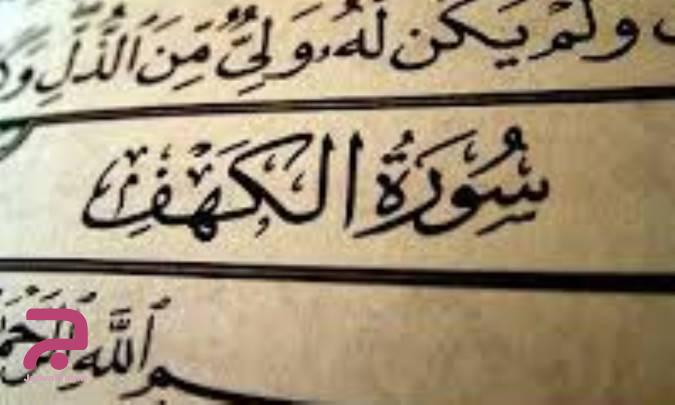 وَلَمْ يَكُن لَّهُۥ وَلِىٌّ مِّنَ ٱلذُّلِّ
سُورَةُ الكَهْفِ
ٱللَّهِ